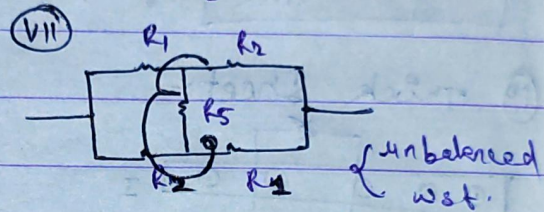 VII
R1 R2
R5
R4
{ Unbalanced
wst.